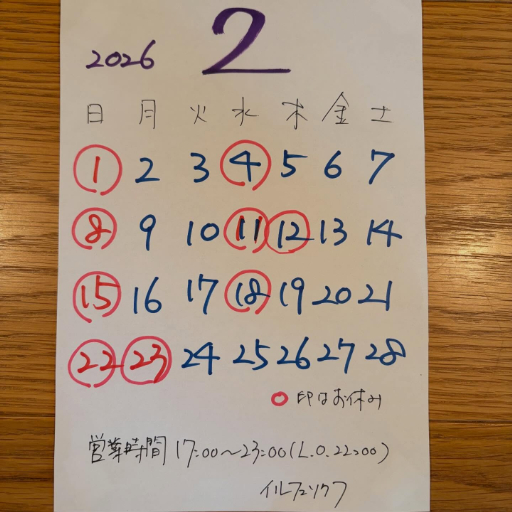 2026 2
日 月 火 水 木 金 土
1 2 3 4 5 6 7
8 9 10 11 12 13 14
15 16 17 18 19 20 21
22 23 24 25 26 27 28
○印はお休み
営業時間 17:00〜23:00(L.O.22:00)